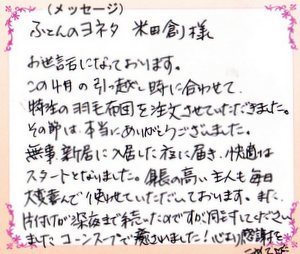 （メッセージ）
ふとんのヨネタ 米田創様
お世話になっております。
この4月の引っ越し時に合わせて、
特注の羽毛布団を注文させていただきました。
その節は、本当にありがとうございました。
無事、新居に入居した夜に届き、快適な
スタートとなりました。身長の高い主人も毎日
大変喜んで使わせていただいております。また、
片付けが深夜まで続いたのですが、同封してください
ました コーンスープで癒されました！心より感謝を
こめて